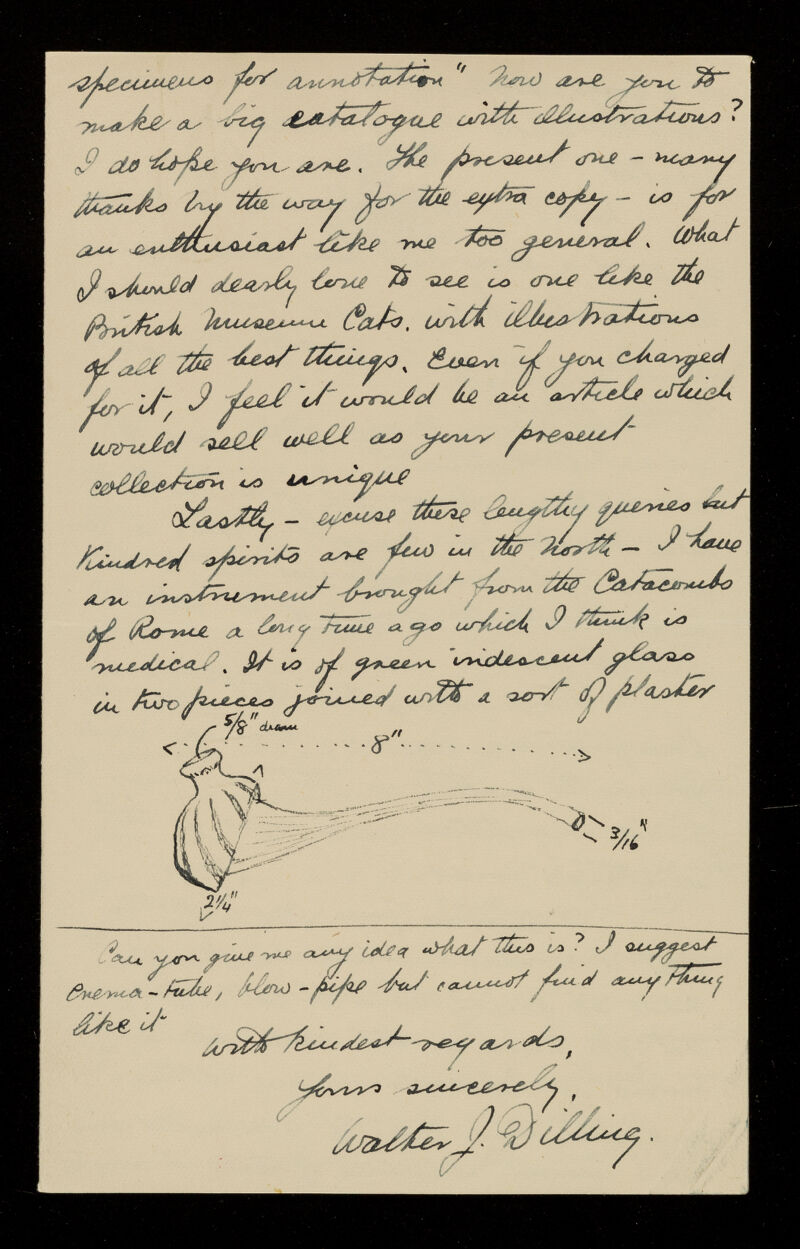 specimens for annotation" Now are you to
make a big catalogue with illustrations?
I do hope you are. The present one – many
thanks by the way for the extra copy – is for
an enthusiast like me too general. What
I should dearly love to see is one like the
British Museum Cats. with illustrations
of all the best things. Even if you charged
for it, I feel it would be an article which
would sell well as your present
collection is unique
Lastly – excuse these lengthy queries but
Kindred spirits are few in the North – I have
an instrument brought from the Catacombs
of Rome a long time ago which I think is
medical. It is of green iridescent glass
in two pieces joined with a sort of plaster
5/8" diam
8"
3/16"
2 1/4"
Can you give me any idea what this is? I suggest
enema-tube, blow-pipe but cannot find anything
like it
With kindest regards,
Yours sincerely,
Walter J. Dilling.